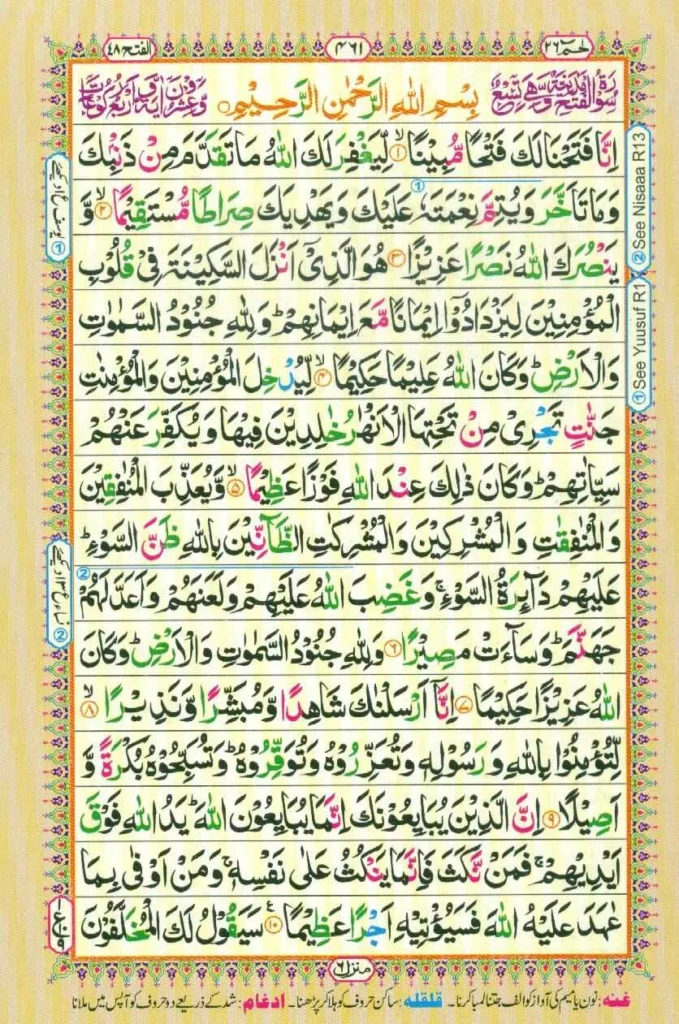 الفتح ٤٨
٤٦١
حٰمٓ ٢٦
سُوْرَةُ الْفَتْحِ مَدَنِيَّةٌ وَّهِيَ تِسْعٌ
بِسْمِ اللهِ الرَّحْمٰنِ الرَّحِيْمِ
وَّعِشْرُوْنَ اٰيَةً وَّاَرْبَعُ رُكُوْعَاتٍ
اِنَّا فَتَحْنَا لَكَ فَتْحًا مُّبِيْنًا ۙ‏﴿۱﴾ لِّيَغْفِرَ لَكَ اللهُ مَا تَقَدَّمَ مِنْ ذَنْۢبِكَ
وَمَا تَاَخَّرَ وَيُتِمَّ نِعْمَتَهٗ عَلَيْكَ وَيَهْدِيَكَ صِرَاطًا مُّسْتَقِيْمًا ۙ﴿۲﴾ وَّ
يَنْصُرَكَ اللهُ نَصْرًا عَزِيْزًا ﴿۳﴾ هُوَ الَّذِيْۤ اَنْزَلَ السَّكِيْنَةَ فِيْ قُلُوْبِ
الْمُؤْمِنِيْنَ لِيَزْدَادُوْۤا اِيْمَانًا مَّعَ اِيْمَانِهِمْ ؕ وَلِلّٰهِ جُنُوْدُ السَّمٰوٰتِ
وَالْاَرْضِ ؕ وَكَانَ اللهُ عَلِيْمًا حَكِيْمًا ۙ﴿۴﴾ لِّيُدْخِلَ الْمُؤْمِنِيْنَ وَالْمُؤْمِنٰتِ
جَنّٰتٍ تَجْرِيْ مِنْ تَحْتِهَا الْاَنْهٰرُ خٰلِدِيْنَ فِيْهَا وَيُكَفِّرَ عَنْهُمْ
سَيِّاٰتِهِمْ ؕ وَكَانَ ذٰلِكَ عِنْدَ اللهِ فَوْزًا عَظِيْمًا ۙ﴿۵﴾ وَّيُعَذِّبَ الْمُنٰفِقِيْنَ
وَالْمُنٰفِقٰتِ وَالْمُشْرِكِيْنَ وَالْمُشْرِكٰتِ الظَّآنِّيْنَ بِاللهِ ظَنَّ السَّوْءِ ؕ
عَلَيْهِمْ دَآىِٕرَةُ السَّوْءِ ۚ وَغَضِبَ اللهُ عَلَيْهِمْ وَلَعَنَهُمْ وَاَعَدَّ لَهُمْ
جَهَنَّمَ ؕ وَسَآءَتْ مَصِيْرًا ﴿۶﴾ وَلِلّٰهِ جُنُوْدُ السَّمٰوٰتِ وَالْاَرْضِ ؕ وَكَانَ
اللهُ عَزِيْزًا حَكِيْمًا ﴿۷﴾ اِنَّاۤ اَرْسَلْنٰكَ شَاهِدًا وَّمُبَشِّرًا وَّنَذِيْرًا ۙ﴿۸﴾
لِّتُؤْمِنُوْا بِاللهِ وَرَسُوْلِهٖ وَتُعَزِّرُوْهُ وَتُوَقِّرُوْهُ ؕ وَتُسَبِّحُوْهُ بُكْرَةً وَّ
اَصِيْلًا ﴿۹﴾ اِنَّ الَّذِيْنَ يُبَايِعُوْنَكَ اِنَّمَا يُبَايِعُوْنَ اللهَ ؕ يَدُ اللهِ فَوْقَ
اَيْدِيْهِمْ ۚ فَمَنْ نَّكَثَ فَاِنَّمَا يَنْكُثُ عَلٰى نَفْسِهٖ ۚ وَمَنْ اَوْفٰى بِمَا
عٰهَدَ عَلَيْهُ اللهَ فَسَيُؤْتِيْهِ اَجْرًا عَظِيْمًا ﴿۱۰﴾ سَيَقُوْلُ لَكَ الْمُخَلَّفُوْنَ
② See Nisaaa R13
① See Yuusuf R1
منزل ٦
غنه: نون یا میم کی آواز کو الف جتنا لمبا کرنا۔ قلقله: ساکن حروف کو ہلا کر پڑھنا۔ ادغام: شد کے ذریعے دو حروف کو آپس میں ملانا